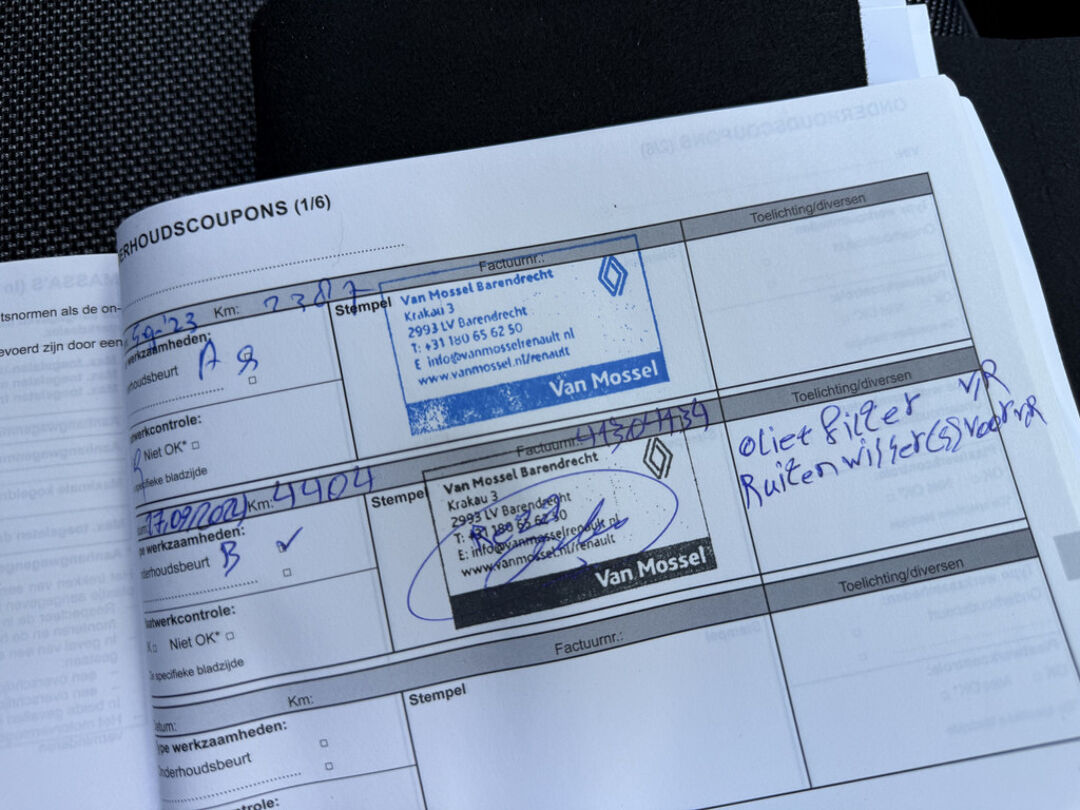 ERHOUDSCOUPONS (1/6)
ONDERHOUDSCOUPONS (2/6)
MASSA'S (In
tsnormen als de on-
evoerd zijn door een
Km: 2387
Factuurnr.:
Toelichting/diversen
werkzaamheden:
rhoudsbeurt A
Stempel
Van Mossel Barendrecht
Krakau 3
2993 LV Barendrecht
T: +31 180 65 62 50
E info@vanmosselrenault nl
www.vanmossel.nl/renault
Van Mossel
twerkcontrole:
Niet OK*
specifieke bladzijde
17.09/2024 Km: 4404
Factuurnr.:
Toelichting/diversen
pe werkzaamheden:
derhoudsbeurt B ✓
Stempel
Van Mossel Barendrecht
Krakau 3
2993 LV Barendrecht
T: +31 180 65 62 50
E: info@vanmosselrenault.nl
www.vanmossel.nl/renault
Van Mossel
oliet filter v/R
Ruitenwisser(s) voor v/R
aatwerkcontrole:
Niet OK*
specifieke bladzijde
atum:
Km:
Factuurnr.:
Toelichting/diversen
pe werkzaamheden:
Onderhoudsbeurt
Stempel
ntrole: